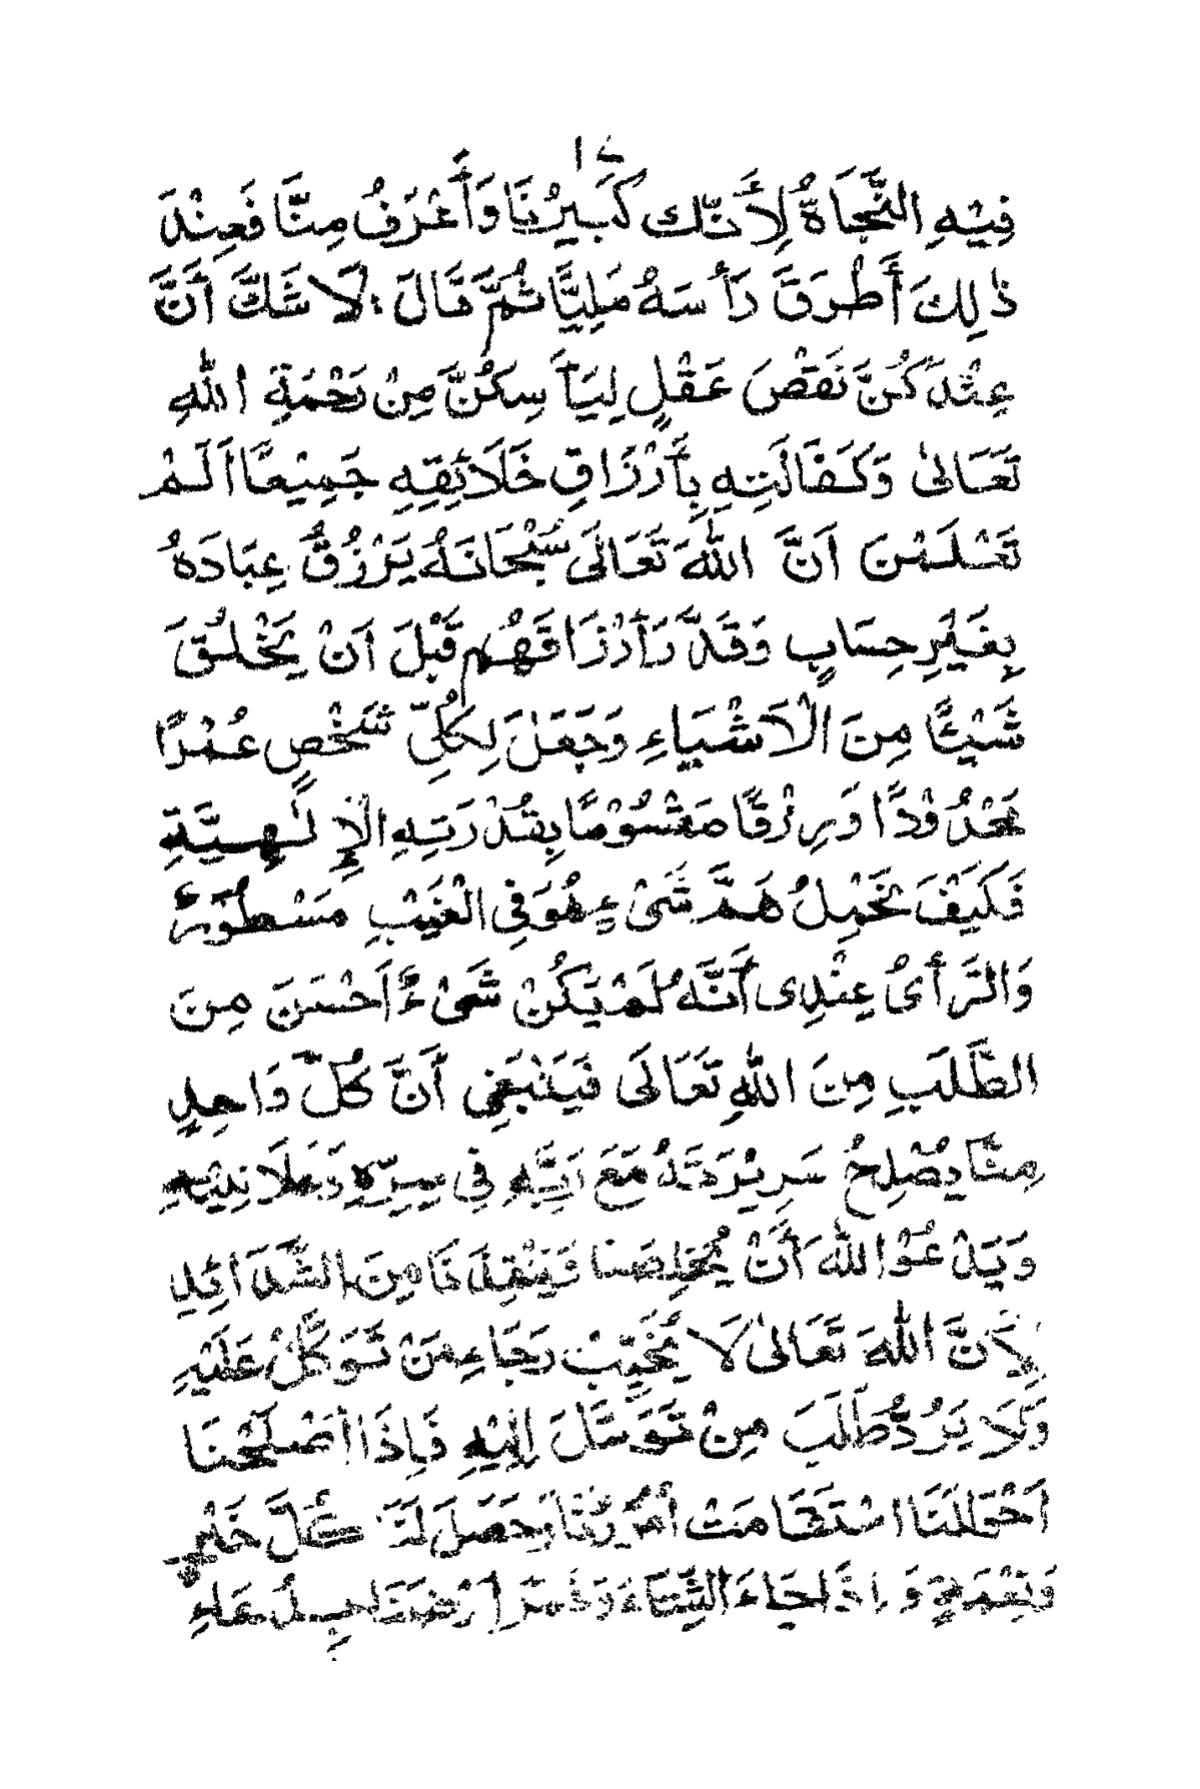 ١٤
فِيْهِ النَّجَاةُ لِأَنَّكَ كَبِيْرُنَا وَأَعْرَفُ مِنَّا فَعِنْدَ
ذٰلِكَ أَطْرَقَ رَأْسَهُ مَلِيًّا ثُمَّ قَالَ: لَا شَكَّ أَنَّ
عِنْدَكُنَّ نَقْصَ عَقْلٍ لِيَأْسِكُنَّ مِنْ رَحْمَةِ اللهِ
تَعَالىٰ وَكَفَالَتِهِ بِأَرْزَاقِ خَلَائِقِهِ جَمِيْعًا اَلَمْ
تَعْلَمْنَ اَنَّ اللهَ تَعَالَى سُبْحَانَهُ يَرْزُقُ عِبَادَهُ
بِغَيْرِ حِسَابٍ وَقَدَّرَ أَرْزَاقَهُمْ قَبْلَ اَنْ يَخْلُقَ
شَيْئًا مِنَ الْاَشْيَاءِ وَجَعَلَ لِكُلِّ شَخْصٍ عُمْرًا
مَحْدُوْدًا وَرِزْقًا مَقْسُوْمًا بِقُدْرَتِهِ الْإِلٰهِيَّةِ
فَكَيْفَ نَحْمِلُ هَمَّ شَيْءٍ هُوَ فِي الْغَيْبِ مَسْطُوْرٌ
وَالرَّأْىُ عِنْدِى أَنَّهُ لَمْ يَكُنْ شَيْءٌ اَحْسَنَ مِنَ
الطَّلَبِ مِنَ اللهِ تَعَالَى فَيَنْبَغِي أَنَّ كُلَّ وَاحِدٍ
مِنَّا يُصْلِحُ سَرِيْرَتَهُ مَعَ رَبِّهِ فِي سِرِّهِ وَعَلَانِيَّتِهِ
وَيَدْعُوْا اللهَ أَنْ يُخَلِّصَنَا مِنَ الشَّدَائِدِ
لِاَنَّ اللهَ تَعَالىٰ لَا يُخَيِّبُ رَجَاءِ مَنْ تَوَكَّلْ عَلَيْهِ
وَلَا يَرُدُّ طَلَبَ مِنْ تَوَسَّلَ اِلَيْهِ فَاِذَا اَصْلَحْنَا
اَحْوَالَنَا اسْتَقَامَتْ أُمُوْرُنَا وَحَصَلَ لَنَا كُلَّ خَيْرٍ
وَنِعْمَةٍ وَاِذَا جَاءَ الشِّتَاءُ